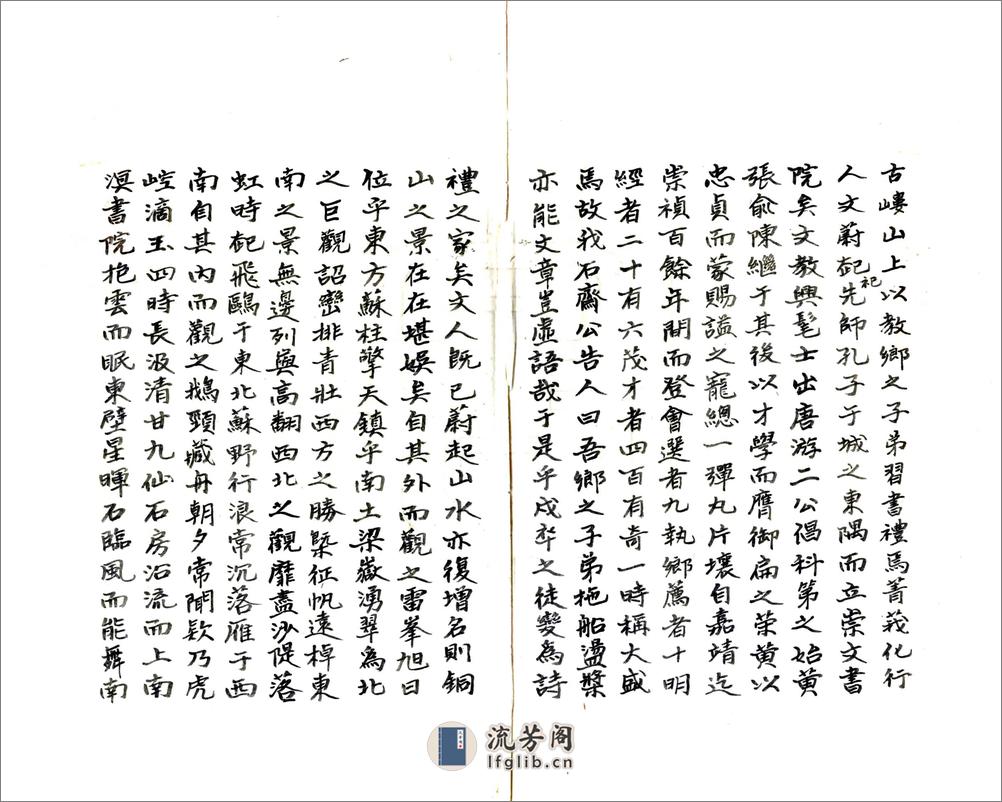 古嶁山上以教鄉之子弟習書禮焉菁莪化行
人文蔚起祀先師孔子于城之東隅而立崇文書
院矣文教興髦士出唐游二公倡科第之始黃
張俞陳繼于其後以才學而膺御扁之荣黄以
忠貞而蒙賜謚之寵總一彈丸片壤自嘉靖迄
崇禎百餘年間而登會選者九執鄉薦者十明
經者二十有六茂才者四百有奇一時稱大盛
焉故我石齋公告人曰吾鄉之子弟柂船盪槳
亦能文章豈虛語哉于是乎戍卒之徒變為詩
禮之家矣文人既已蔚起山水亦復增名則銅
山之景在在堪娛矣自其外而觀之雷峯旭日
位乎東方蘇柱擎天鎮乎南土梁嶽湧翠為北
之巨觀詔巒排青壯西方之勝槩征帆遠棹東
南之景無邊列與高翻西北之觀靡盡沙隄落
虹時起飛鷗于東北蘇野行浪常沉落雁于西
南自其内而觀之鵝頸藏舟朝夕常聞欵乃虎
崆滴玉四時長汲清甘九仙石房沿流而上南
溟書院抱雲而眠東壁星暉石臨風而能舞南
流芳阁
lfglib.cn